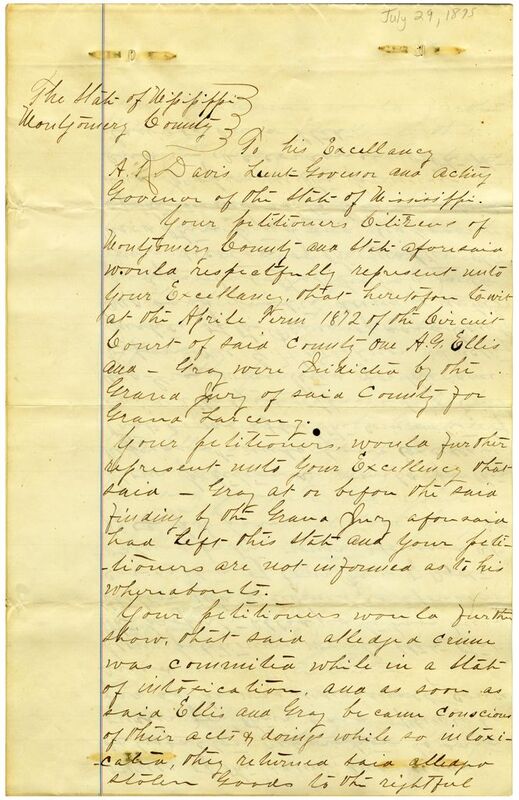 July 29, 1875
The State of Mississippi
Montgomery County
To his Excellancy
A. K. Davis Lieut Govonor and Acting
Govenor of the State of Mississippi.
Your petitioners Citizens of
Montgomery County and State aforesaid
would respectfully represent unto
your Excellancy, that heretofore towit
at the Aprile Term 1872 of the Circuit
Court of said County One A.G. Ellis
and - Gray were Indicted by the
Grand Jury of said County for
Grand Larceny.
Your petitioners, would further
represent unto your Excellency that
said - Gray at or before the said
finding by the Grand Jury aforesaid
had left this State and your peti-
-tioners are not informed as to his
whereabouts.
Your petitioners would further
show, that said alledged crime
was commited while in a State
of intoxication, and as soon as
said Ellis and Gray became conscious
of their acts & doings while so intoxi-
cated, they returned said alledgd
stolen goods to the rightful